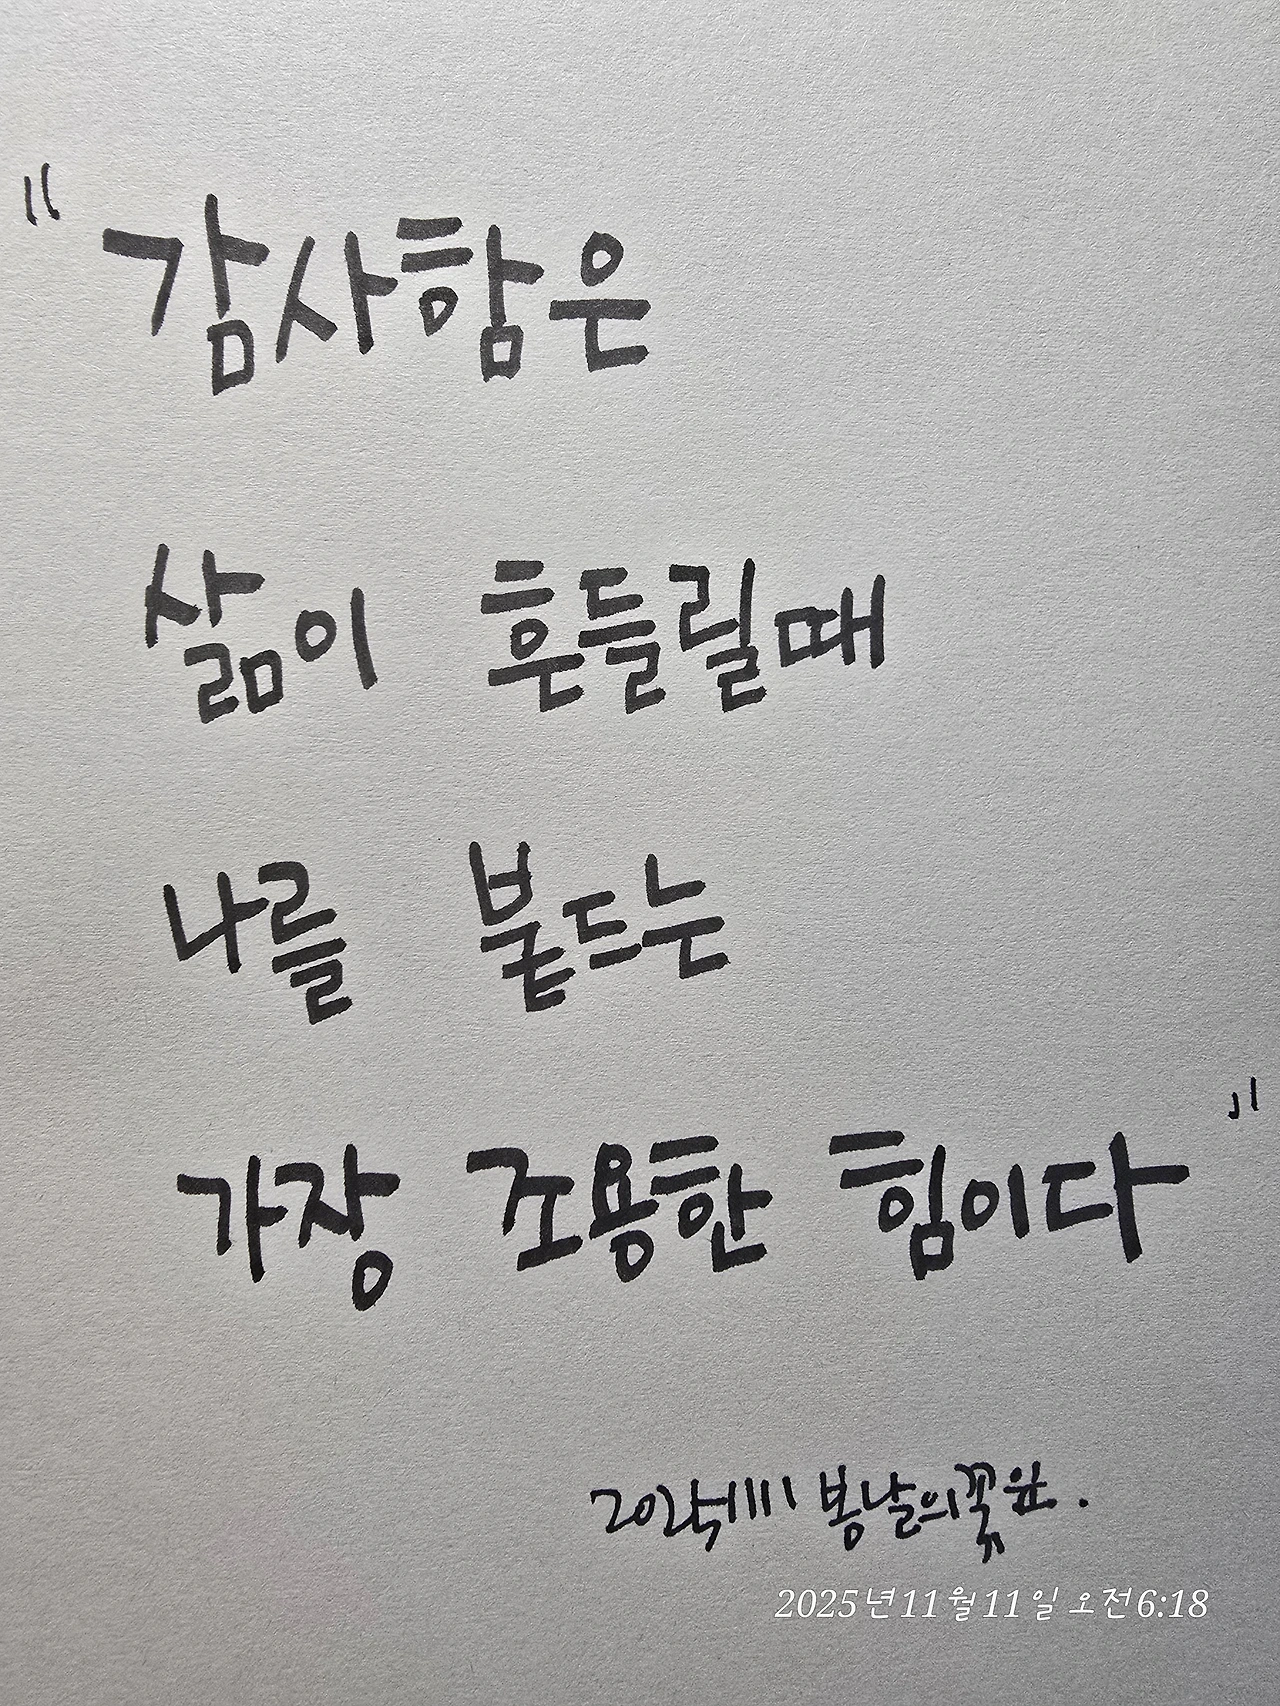 "감사함은
삶이 흔들릴때
나를 붙드는
가장 조용한 힘이다"
20251111 봄날의꽃윤.
2025년11월11일 오전6:18